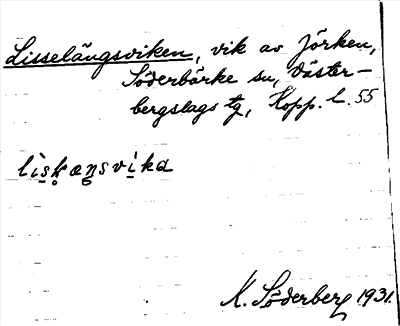 Lisselängsviken, vik av Jörken,
Söderbärke sn, Väster-
bergslags tg, Kopp. l. 55
liskæŋsvika
K. Söderberg 1931.